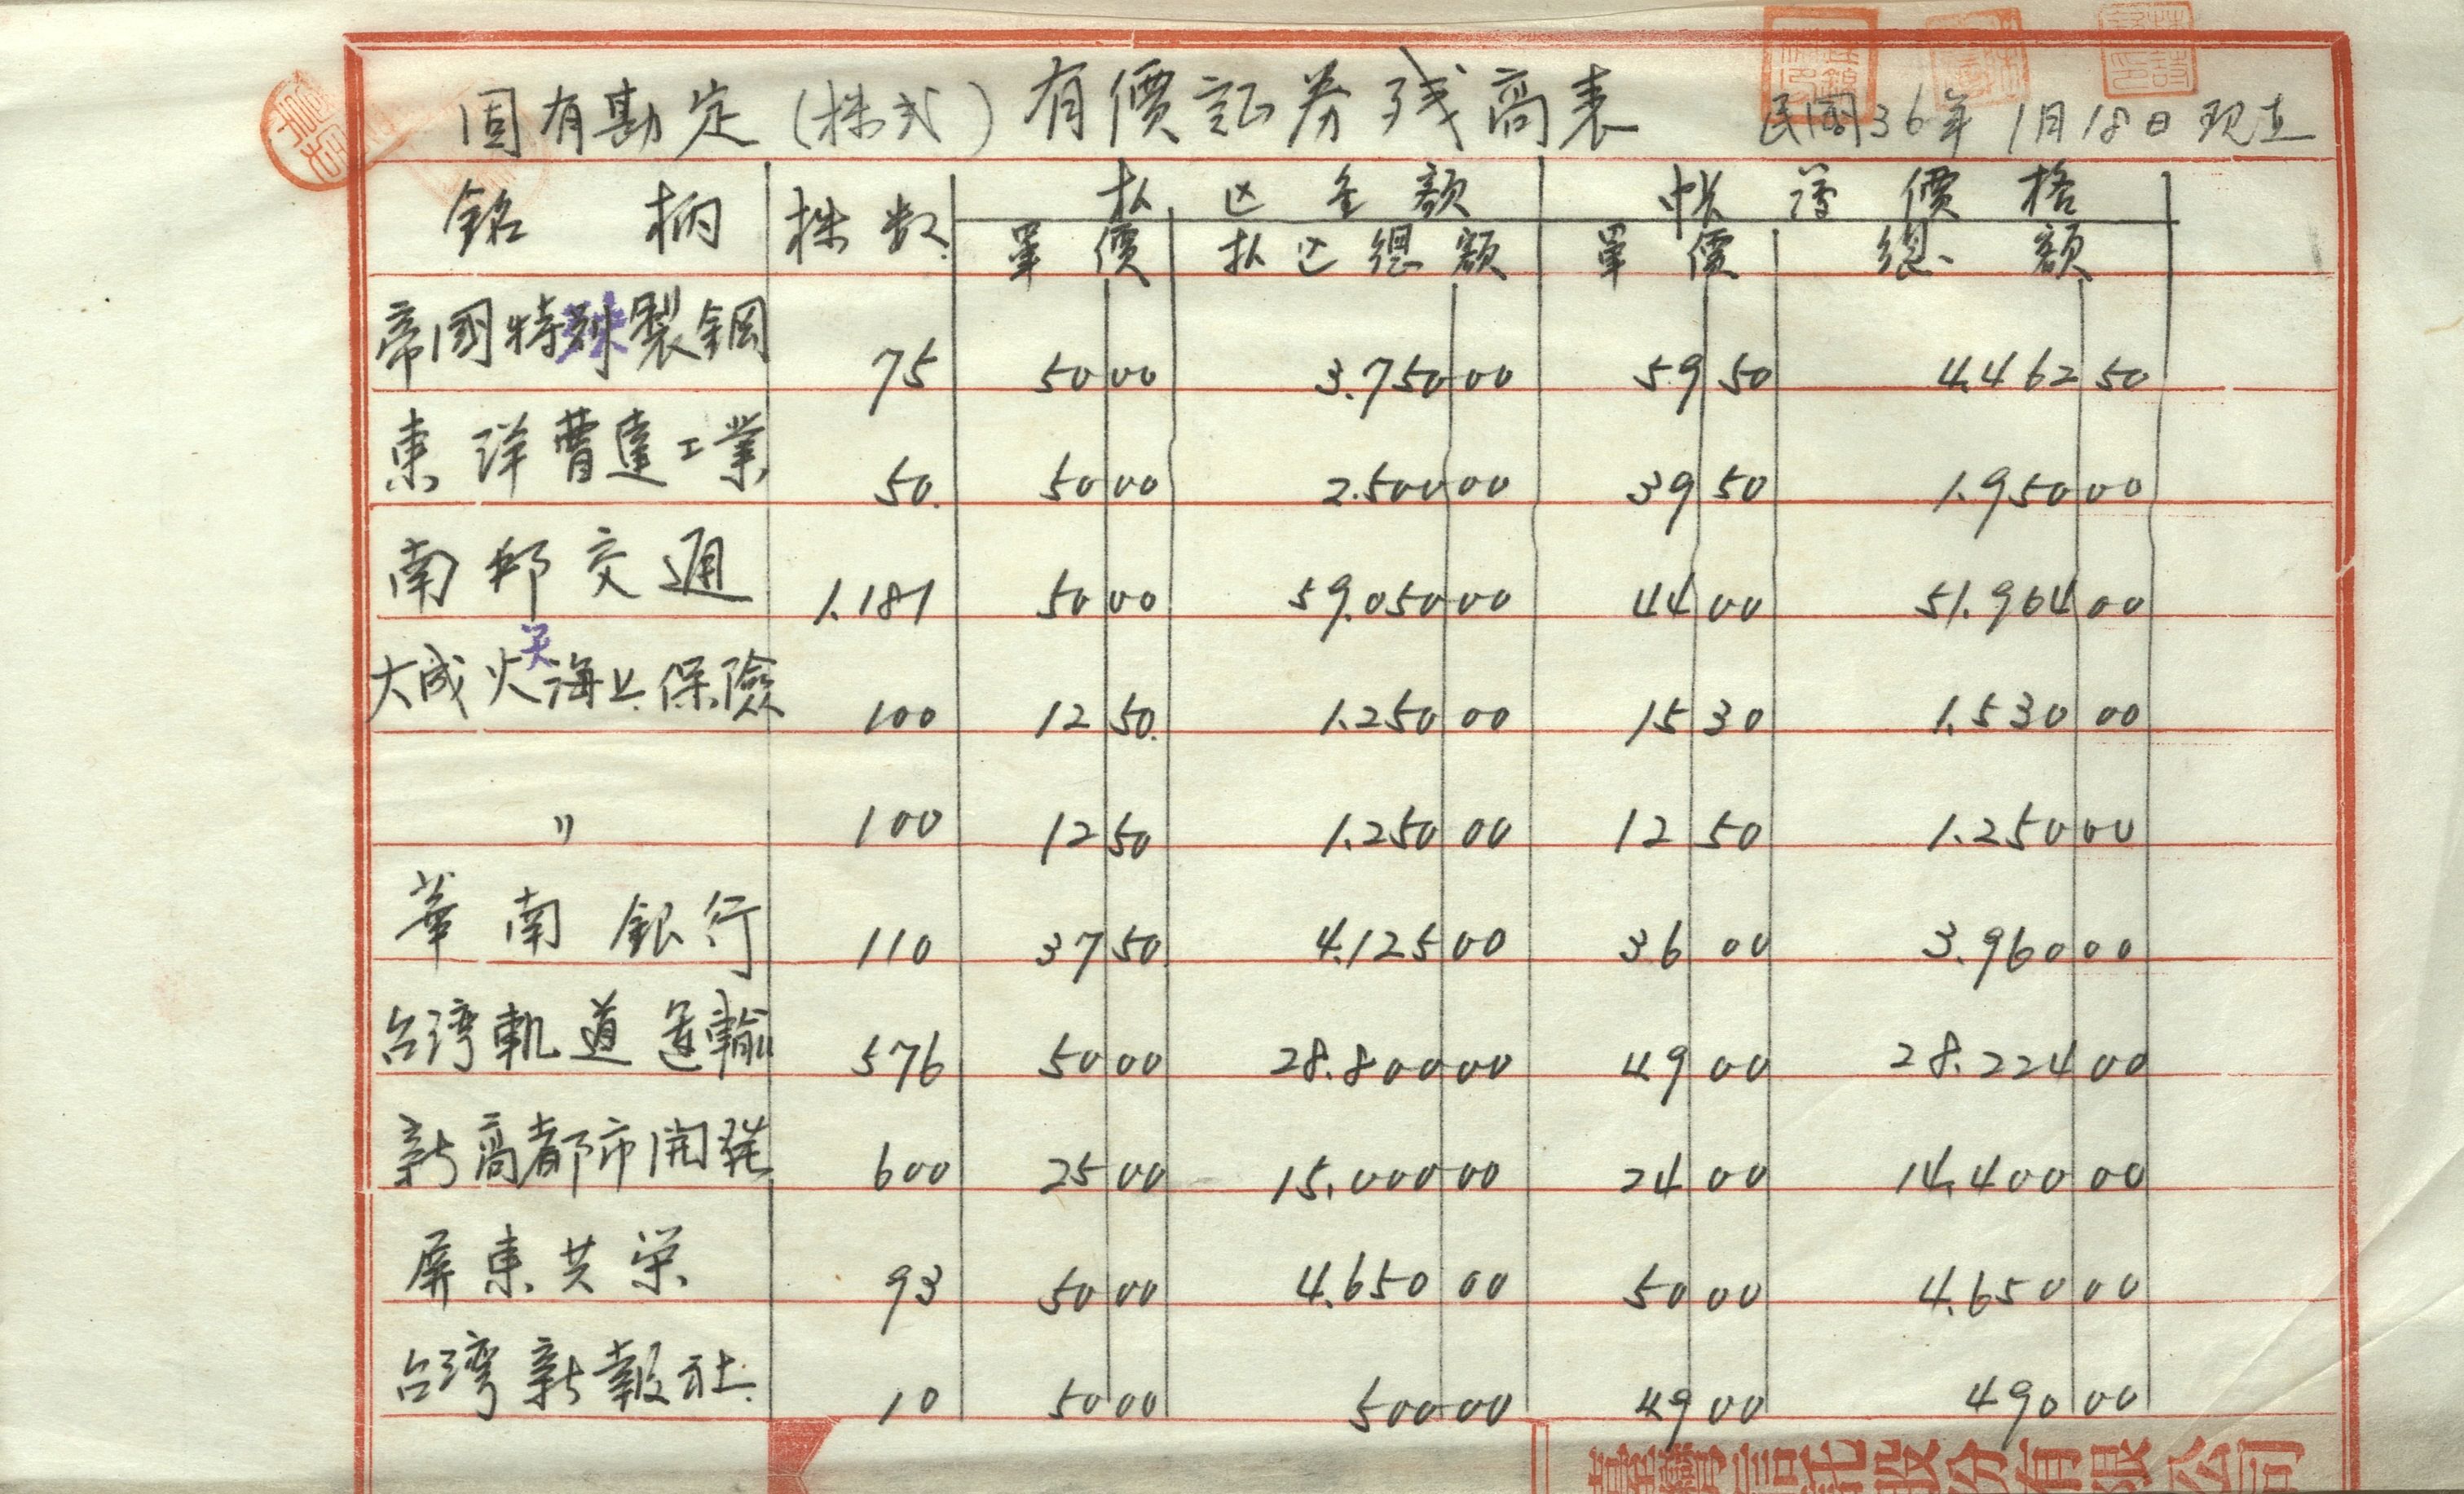 固有勘定(株式)有價証券残高表 民國36年1月18日現在
銘柄 株数 払込金額 帳簿價格
單價 払込總額 單價 總額
帝國特殊製鋼 75 50 00 3.750 00 59 50 4.462 50
東洋曹達工業 50. 50 00 2.500 00 39 50 1.950 00
南邦交通 1.181 50 00 59.050 00 44 00 51.964 00
大成火災海上保險 100 12 50. 1.250 00 15 30 1.530 00
〃 100 12 50 1.250 00 12 50 1.250 00
華南銀行 110 37 50. 4.125 00 36 00 3.960 00
台湾軌道運輸 576 50 00 28.800 00 49 00 28.224 00
新高都市開発 600 25 00 15.000 00 24 00 14.400 00
屏東共栄 93 50 00 4.650 00 50 00 4.650 00
台湾新報社. 10 50 00 500 00 49 00 490 00
臺灣信託股份有限公司